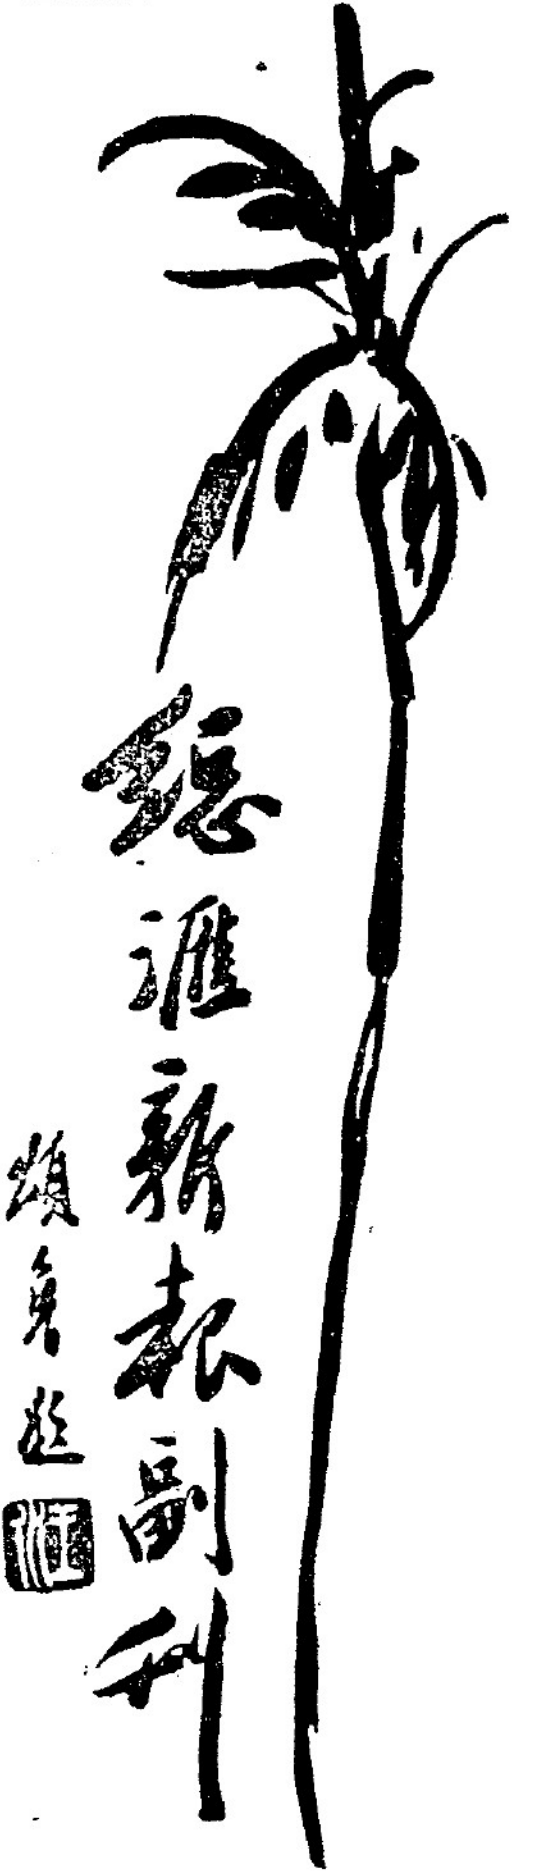 總滙新報副刊
題
汪